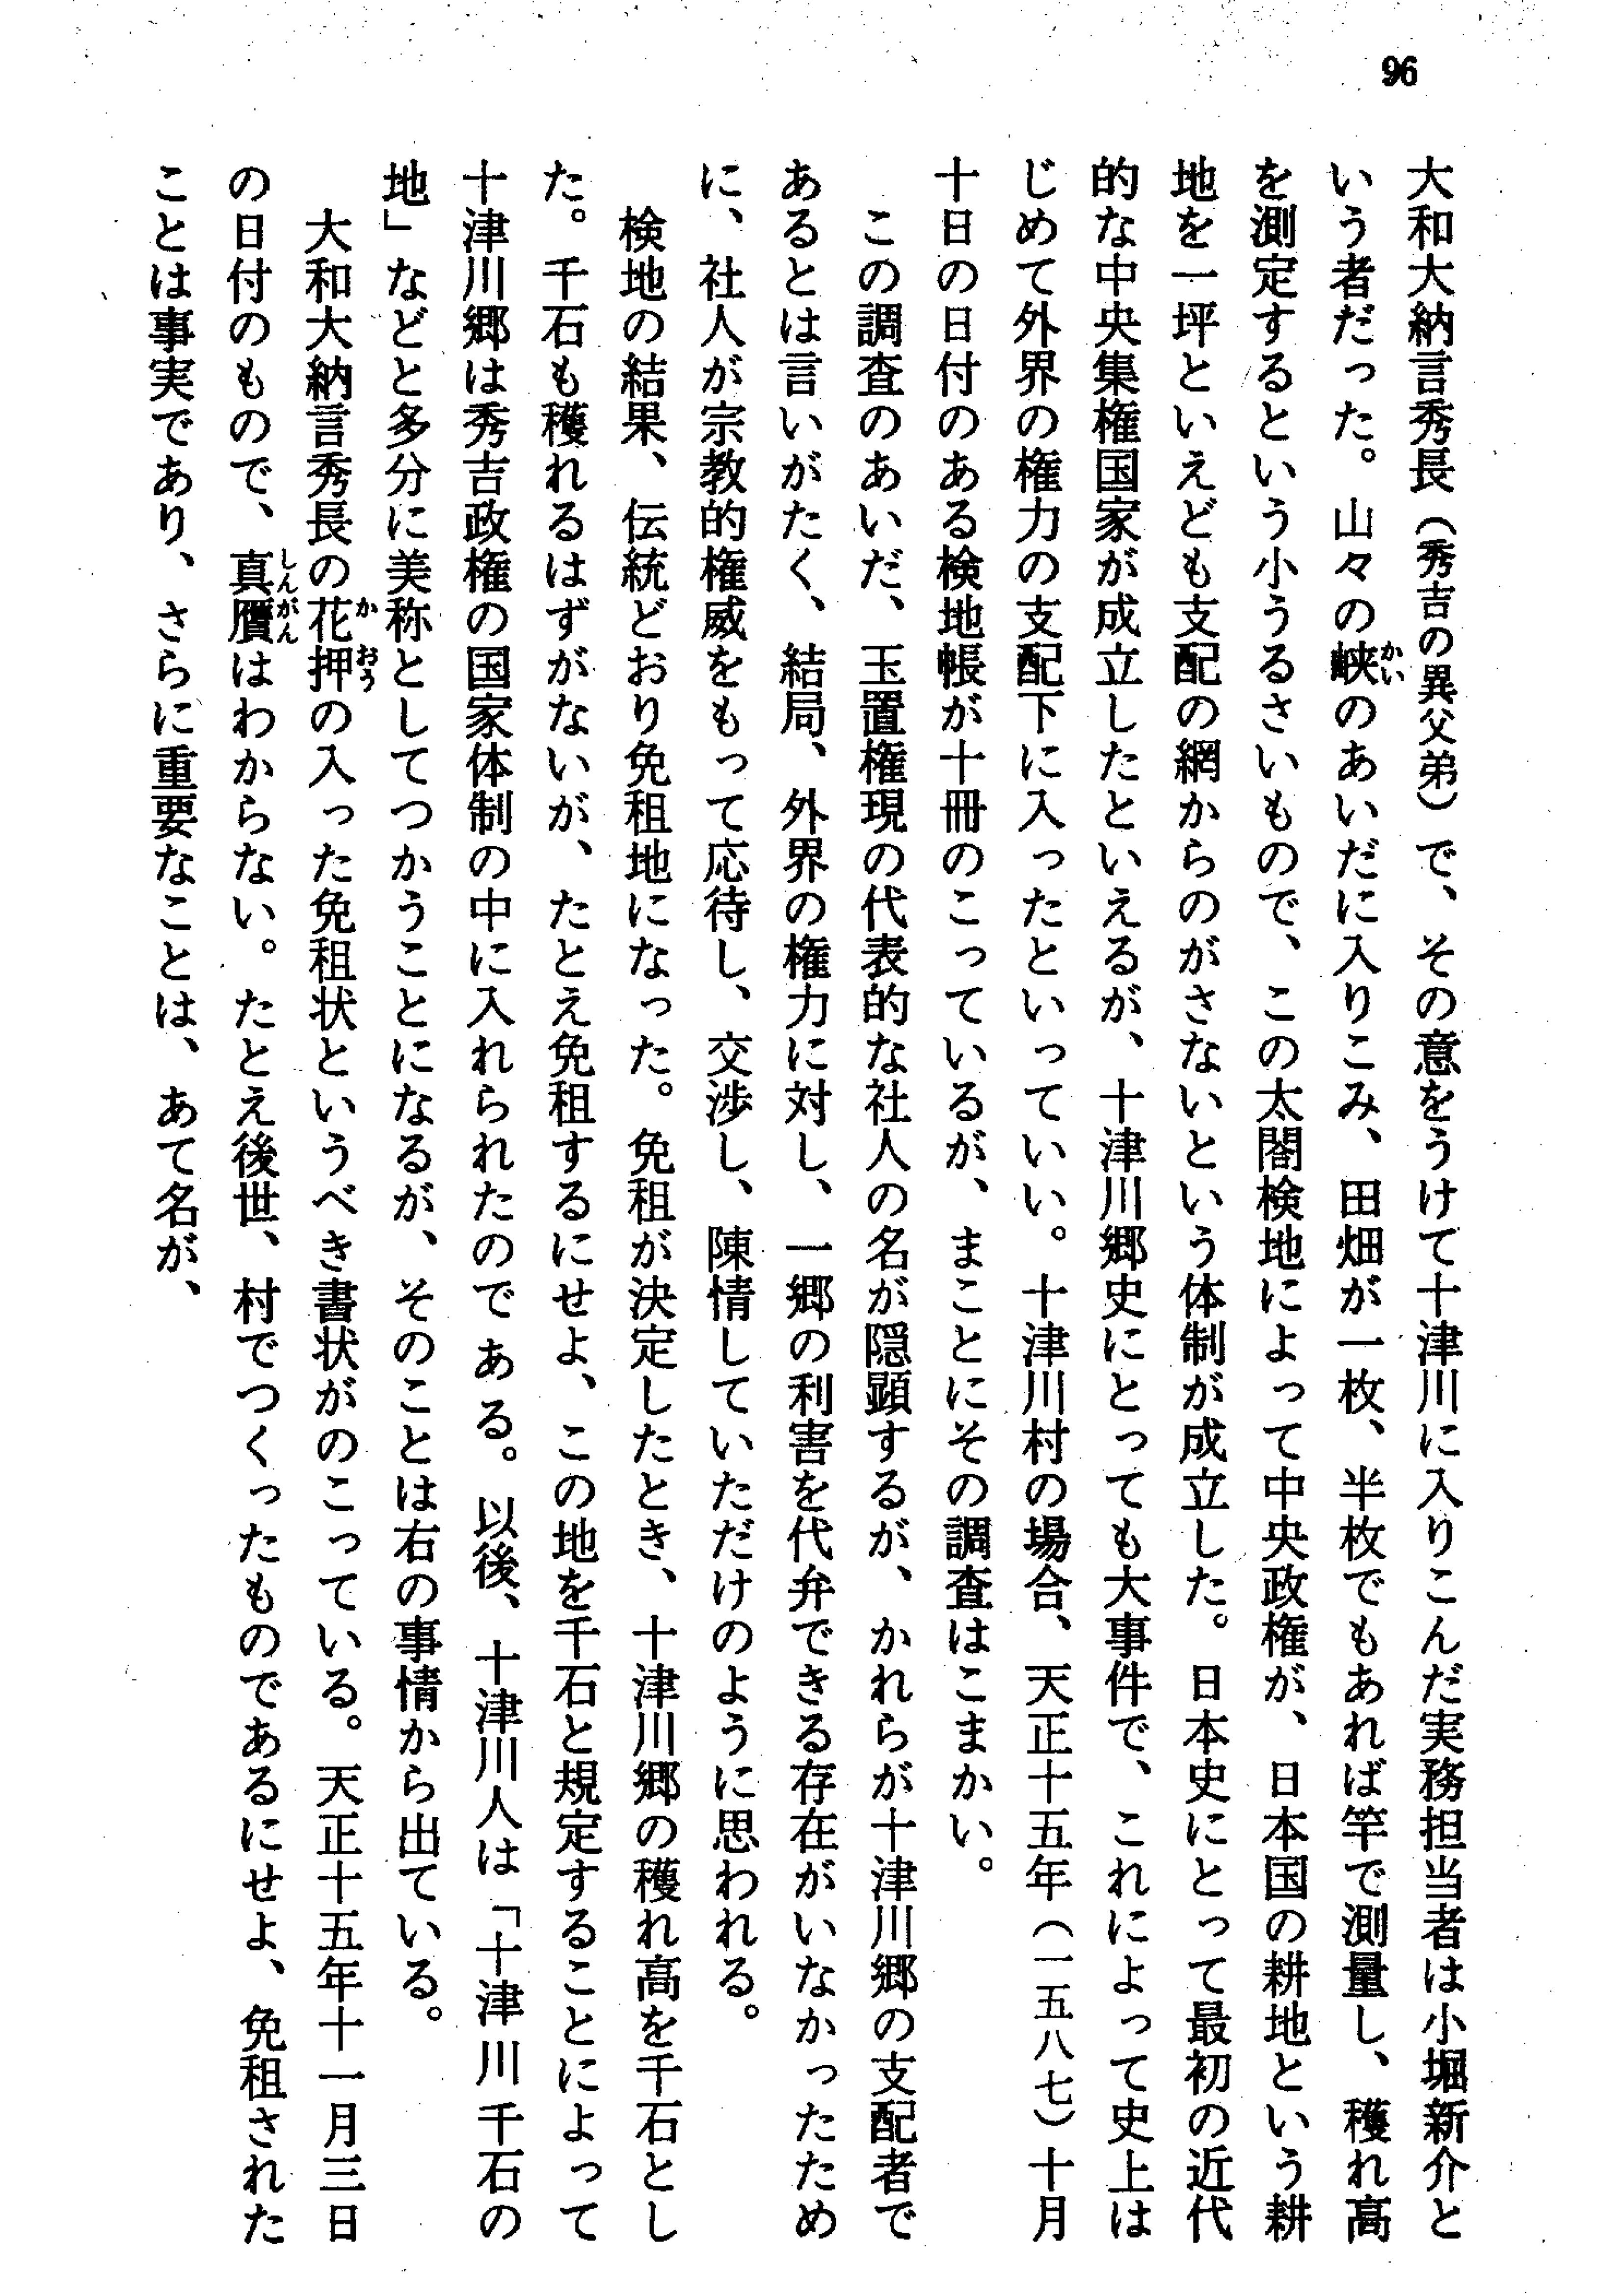 96
大和大納言秀長（秀吉の異父弟）で、その意をうけて十津川に入りこんだ実務担当者は小堀新介と
いう者だった。山々の峡のあいだに入りこみ、田畑が一枚、半枚でもあれば竿で測量し、穫れ高
を測定するという小うるさいもので、この太閤検地によって中央政権が、日本国の耕地という耕
地を一坪といえども支配の網からのがさないという体制が成立した。日本史にとって最初の近代
的な中央集権国家が成立したといえるが、十津川郷史にとっても大事件で、これによって史上は
じめて外界の権力の支配下に入ったといっていい。十津川村の場合、天正十五年（一五八七）十月
十日の日付のある検地帳が十冊のこっているが、まことにその調査はこまかい。
この調査のあいだ、玉置権現の代表的な社人の名が隠顕するが、かれらが十津川郷の支配者で
あるとは言いがたく、結局、外界の権力に対し、一郷の利害を代弁できる存在がいなかったため
に、社人が宗教的権威をもって応待し、交渉し、陳情していただけのように思われる。
検地の結果、伝統どおり免租地になった。免租が決定したとき、十津川郷の穫れ高を千石とし
た。千石も穫れるはずがないが、たとえ免租するにせよ、この地を千石と規定することによって
十津川郷は秀吉政権の国家体制の中に入れられたのである。以後、十津川人は「十津川千石の
地」などと多分に美称としてつかうことになるが、そのことは右の事情から出ている。
大和大納言秀長の花押の入った免租状というべき書状がのこっている。天正十五年十一月三日
の日付のもので、真贋はわからない。たとえ後世、村でつくったものであるにせよ、免租された
ことは事実であり、さらに重要なことは、あて名が、